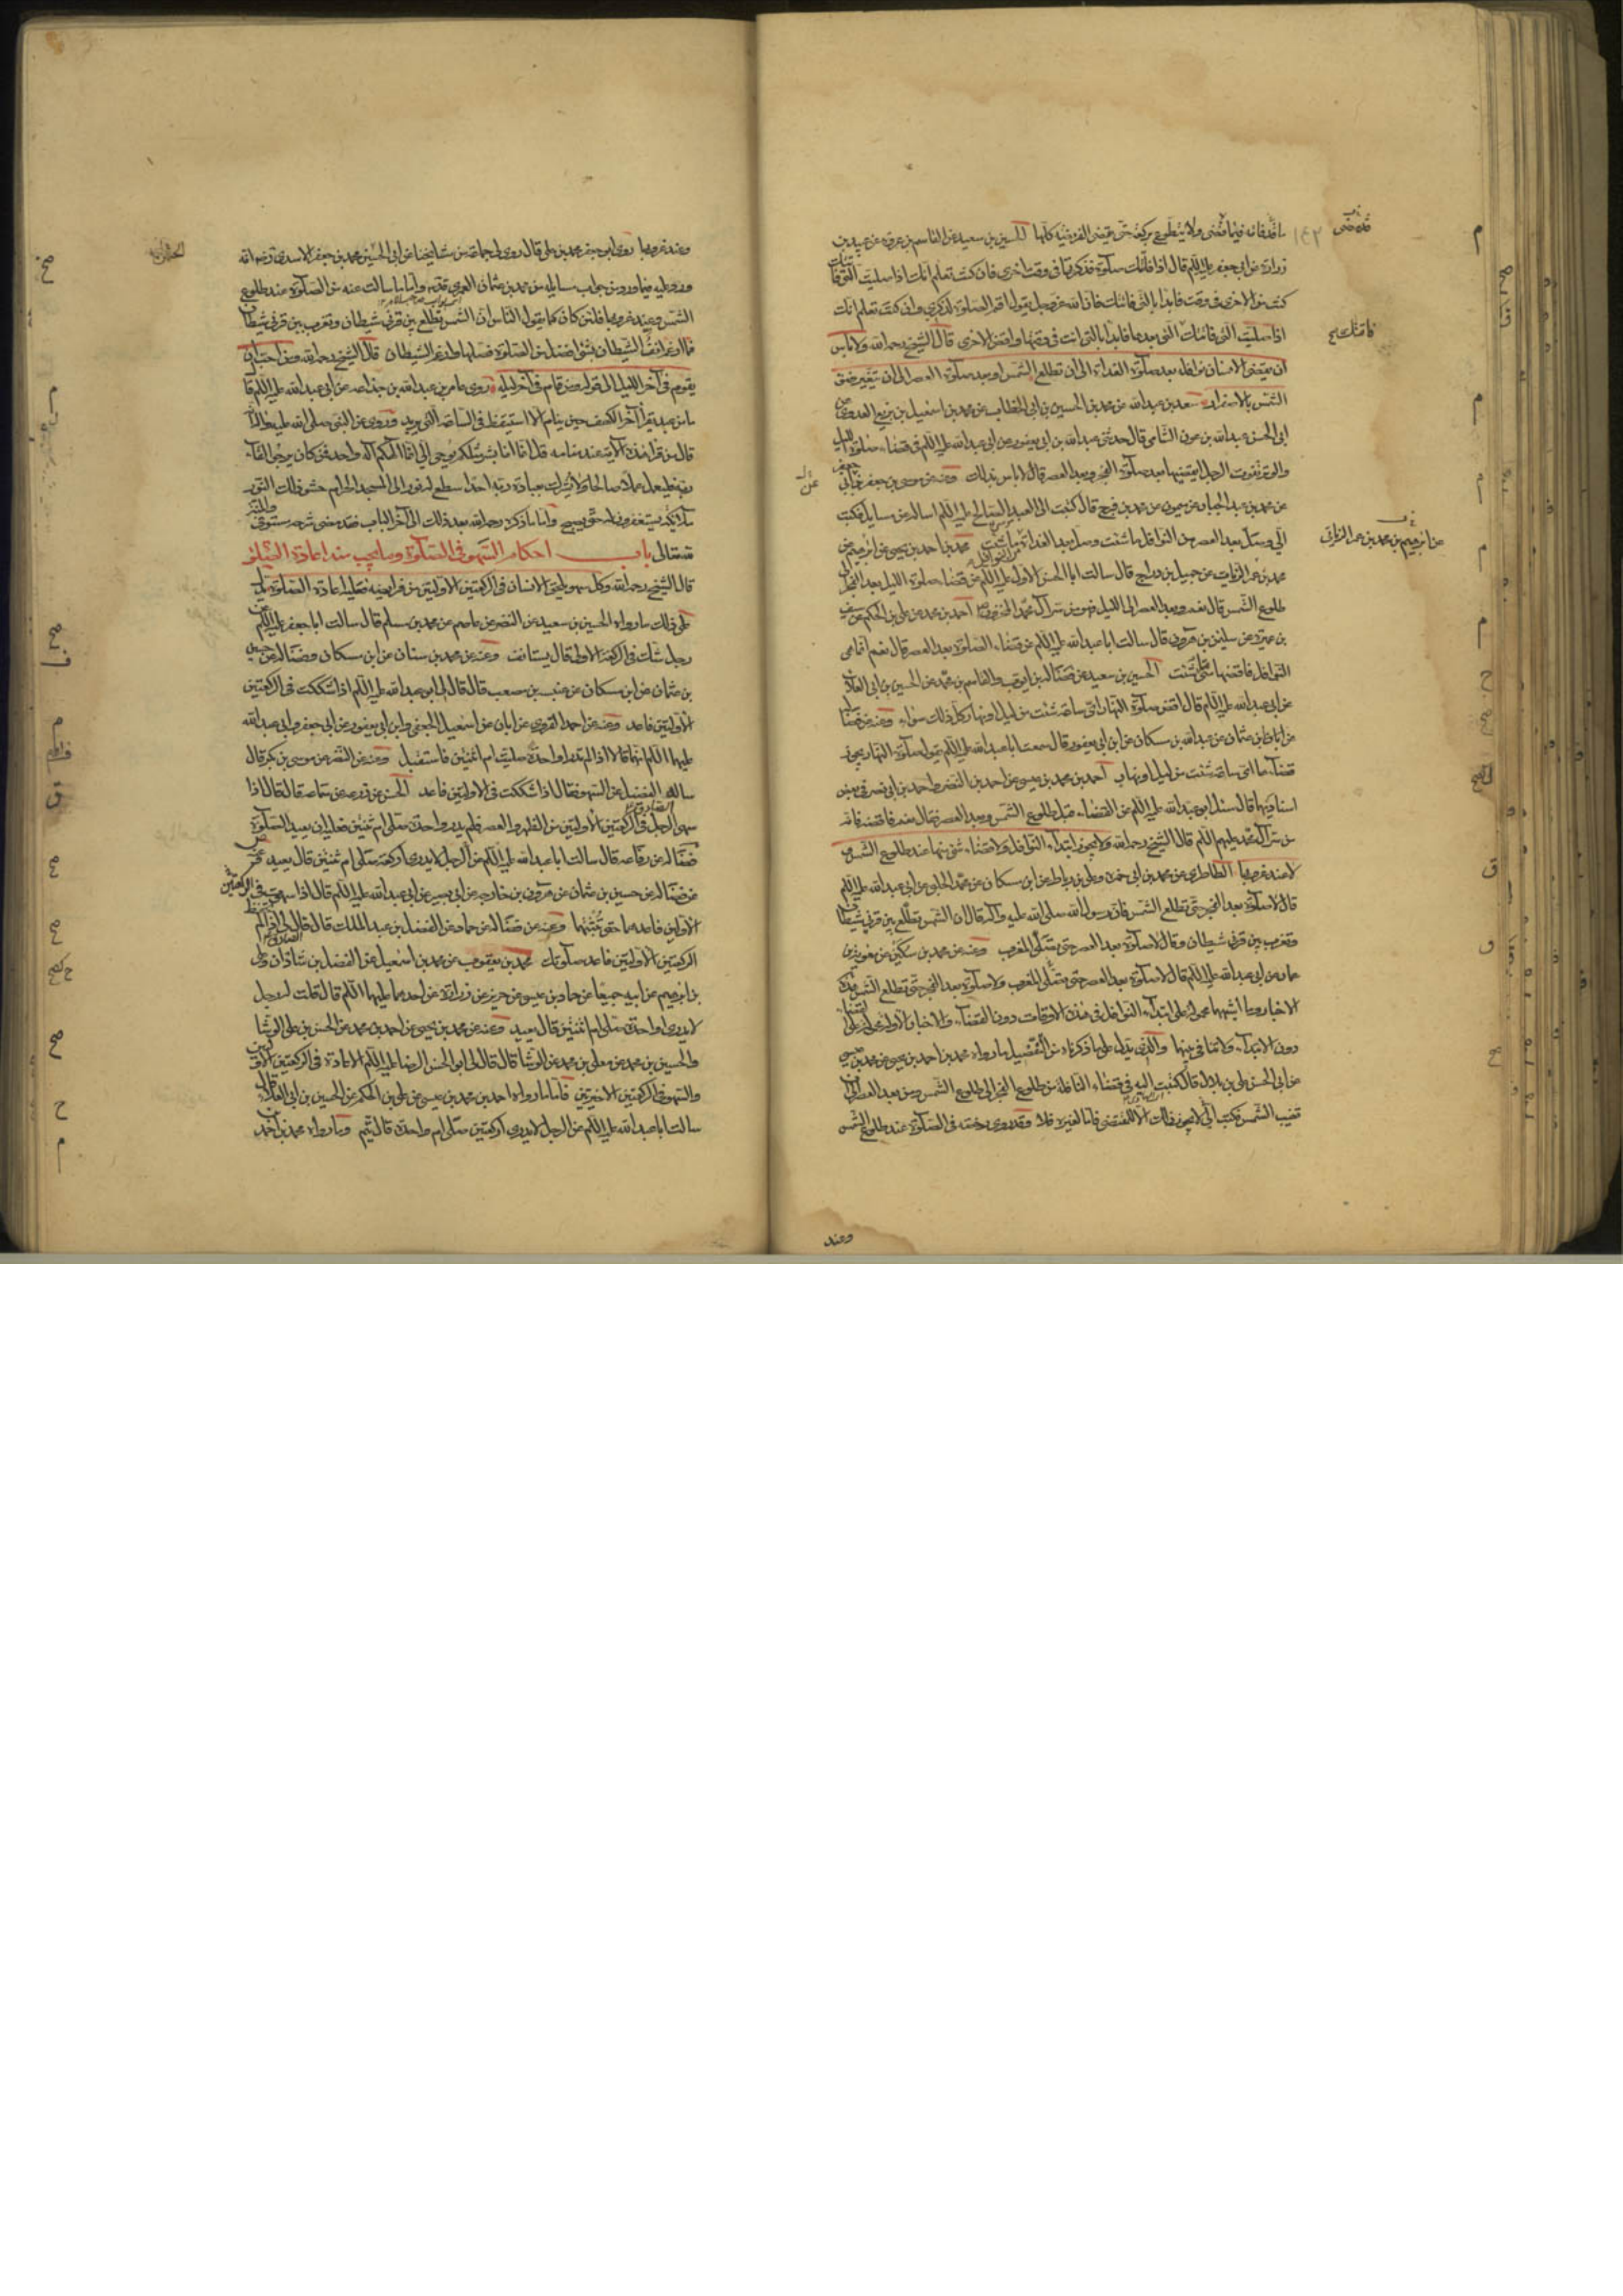 باقد فانه فيما مضى ولا يتطوع بركعة حتى يقضى الفريضة كلها الحسين بن سعيد عن القاسم بن عروة عن عبيد بن
زرارة عن ابى جعفر عليه السلم قال اذا فاتتك صلوة فذكرتها فى وقت اخرى فان كنت تعلم انك اذا صليت التى فاتتك
كنت من الاخرى فى وقت فابدأ بالتى فاتتك فان الله عز وجل يقول اقم الصلوة لذكرى وان كنت تعلم انك
اذا صليت التى فاتتك التى بعدها فابدأ بالتى انت فى وقتها واقض الاخرى قال الشيخ رحمه الله ولا باس
ان يقضى الانسان نوافله بعد صلوة الغداة الى ان تطلع الشمس وبعد صلوة العصر الى ان يتغير ضوء
الشمس بالاصفرار سعد بن عبد الله عن محمد بن الحسين بن ابى الخطاب عن محمد بن اسمعيل بن بزيع العدوى عن
ابى الحسن عبد الله بن عون الشامى قال حدثنى عبد الله بن ابى يعفور عن ابى عبد الله عليه السلم فى قضاء صلوة الليل
والوتر تفوت الرجل ايقضيها بعد صلوة الفجر وبعد العصر قال لا باس بذلك وعنه عن موسى بن جعفر بن ابى جعفر
عن محمد بن عبد الجبار عن ميمون عن محمد بن فرج قال كتبت الى العبد الصالح عليه السلم اساله عن مسايل فكتب
الى وصل بعد العصر من النوافل ما شئت وصل بعد الغداة من النوافل ما شئت محمد بن احمد بن يحيى عن ابرهيم عن
محمد بن عمر الزيات عن جميل بن دراج قال سالت ابا الحسن الاول عليه السلم عن قضاء صلوة الليل بعد الفجر الى
طلوع الشمس قال نعم وبعد العصر الى الليل فهو من سر آل محمد المخزون احمد بن محمد عن على بن الحكم عن سيف
بن عميرة عن سليمن بن هرون قال سالت ابا عبد الله عليه السلم عن قضاء الصلوة بعد العصر قال نعم انما هى
النوافل فاقضها متى شئت الحسين بن سعيد عن فضالة بن ايوب والقاسم بن محمد عن الحسين بن ابى العلاء
عن ابى عبد الله عليه السلم قال اقض صلوة النهار اى ساعة شئت من ليل او نهار كل ذلك سواء وعنه عن فضالة
عن ابان بن عثمان عن عبد الله بن مسكان عن ابن ابى يعفور قال سمعت ابا عبد الله عليه السلم يقول صلوة النهار يجوز
قضاؤها اى ساعة شئت من ليل او نهار احمد بن محمد بن عيسى عن احمد بن النضر واحمد بن ابى نصر فى بعض
اسناديهما قال سئل ابو عبد الله عليه السلم عن القضاء قبل طلوع الشمس وبعد العصر فقال نعم فاقضه فانه
من سر آل محمد عليهم السلم قال الشيخ رحمه الله ولا يجوز ابتداء النوافل ولا قضاء شئ منها عند طلوع الشمس و
لا عند غروبها الطاطرى عن محمد بن ابى حمزة وعلى بن رباط عن ابن مسكان عن محمد الحلبى عن ابى عبد الله عليه السلم
قال لا صلوة بعد الفجر حتى تطلع الشمس فان رسول الله صلى الله عليه وآله قال ان الشمس تطلع بين قرنى شيطان
وتغرب بين قرنى شيطان وقال لا صلوة بعد العصر حتى يصلى المغرب وعنه عن محمد بن سكين عن معوية بن
عمار عن ابى عبد الله عليه السلم قال لا صلوة بعد العصر حتى يصلى المغرب ولا صلوة بعد الفجر حتى تطلع الشمس فهذه
الاخبار وما اشبهها محمولة على ابتداء النوافل فى هذه الاوقات دون القضاء والاخبار الاولة على القضاء
دون الابتداء ولا تنافى بينها والذى يدل على ما ذكرناه من التفصيل ما رواه محمد بن احمد بن يحيى عن محمد بن عيسى
عن ابى الحسن على بن بلال قال كتبت اليه فى قضاء النافلة من طلوع الفجر الى طلوع الشمس ومن بعد العصر الى ان
تغيب الشمس فكتب الى لا يجوز ذلك الا للمقتضى فاما لغيره فلا وقد روى رخصة فى الصلوة عند طلوع الشمس
وعند
عن ابرهيم بن محمد بن عمر الزيات
وعند غروبها روى ابو جعفر محمد بن على قال روى لى جماعة من مشايخنا عن ابى الحسين محمد بن جعفر الاسدى رضى الله
ورد عليه فيما ورد من جواب مسايله من محمد بن عثمان العمرى قدس واما ما سالت عنه من الصلوة عند طلوع
الشمس وعند غروبها فلئن كان كما يقول الناس ان الشمس تطلع بين قرنى شيطان وتغرب بين قرنى شيطان
فما ارغم انف الشيطان بشئ افضل من الصلوة فصلها وارغم الشيطان قال الشيخ رحمه الله ومن احب ان
يقوم فى آخر الليل الى قوله ومن قام فى آخر ليله روى عامر بن عبد الله بن جذاعة عن ابى عبد الله عليه السلم قال
ما من عبد يقرأ آخر الكهف حين ينام الا استيقظ فى الساعة التى يريد وروى عن النبى صلى الله عليه وآله
قال من قرأ هذه الآية عند منامه قل انما انا بشر مثلكم يوحى الى انما الهكم اله واحد فمن كان يرجو لقاء
ربه فليعمل عملا صالحا ولا يشرك بعبادة ربه احدا سطع له نور الى المسجد الحرام حشو ذلك النور
ملائكة يستغفرون له حتى يصبح واما ما ذكره رحمه الله بعد ذلك الى آخر الباب فقد مضى شرحه مستوفى
تعالى باب احكام السهو فى الصلوة وما يجب منه اعادة الصلوة
قال الشيخ رحمه الله وكل سهو يلحق الانسان فى الركعتين الاولتين من فرايضه فعليه اعادة الصلوة يدل
على ذلك ما رواه الحسين بن سعيد عن النضر عن عاصم عن محمد بن مسلم قال سالت ابا جعفر عليه السلم عن
رجل شك فى الركعة الاولى قال يستانف وعنه عن محمد بن سنان عن ابن مسكان وفضالة عن حسين
بن عثمان عن ابن مسكان عن عنبسة بن مصعب قال قال لى ابو عبد الله عليه السلم اذا شككت فى الركعتين
الاولتين فاعد وعنه عن احمد القروى عن ابان عن اسمعيل الجعفى وابن ابى يعفور عن ابى جعفر وابى عبد الله
عليهما السلم انهما قالا اذا لم تدر واحدة صليت ام ثنتين فاستقبل وعنه عن النضر عن موسى بن بكر قال
ساله الفضيل عن السهو فقال اذا شككت فى الاولتين فاعد الحسن عن زرعة عن سماعة قال قال اذا
سهى الرجل فى الركعتين الاولتين من الظهر والعصر فلم يدر واحدة صلى ام ثنتين فعليه ان يعيد الصلوة
فضالة عن رفاعة قال سالت ابا عبد الله عليه السلم عن الرجل لا يدرى اركعة صلى ام ثنتين قال يعيد
عن فضالة عن حسين بن عثمان عن هرون بن خارجة عن ابى بصير عن ابى عبد الله عليه السلم قال اذا سهوت فى الركعتين
الاولتين فاعدهما حتى تثبتهما وعنه عن فضالة عن حماد عن الفضل بن عبد الملك قال قال لى اذا لم تحفظ
الركعتين الاولتين فاعد صلوتك محمد بن يعقوب عن محمد بن اسمعيل عن الفضل بن شاذان وعلى
بن ابرهيم عن ابيه جميعا عن حماد بن عيسى عن حريز عن زرارة عن احدهما عليهما السلم قال قلت له رجل
لا يدرى واحدة صلى ام ثنتين قال يعيد وعنه عن محمد بن يحيى عن احمد بن محمد عن الحسن بن على الوشا
والحسين بن محمد عن معلى بن محمد عن الوشا قال قال لى ابو الحسن الرضا عليه السلم الاعادة فى الركعتين الاولتين
والسهو فى الركعتين الاخيرتين فاما ما رواه احمد بن محمد بن عيسى عن على بن الحكم عن الحسين بن ابى العلاء قال
سالت ابا عبد الله عليه السلم عن الرجل لا يدرى اركعتين صلى ام واحدة قال يتم وما رواه محمد بن احمد